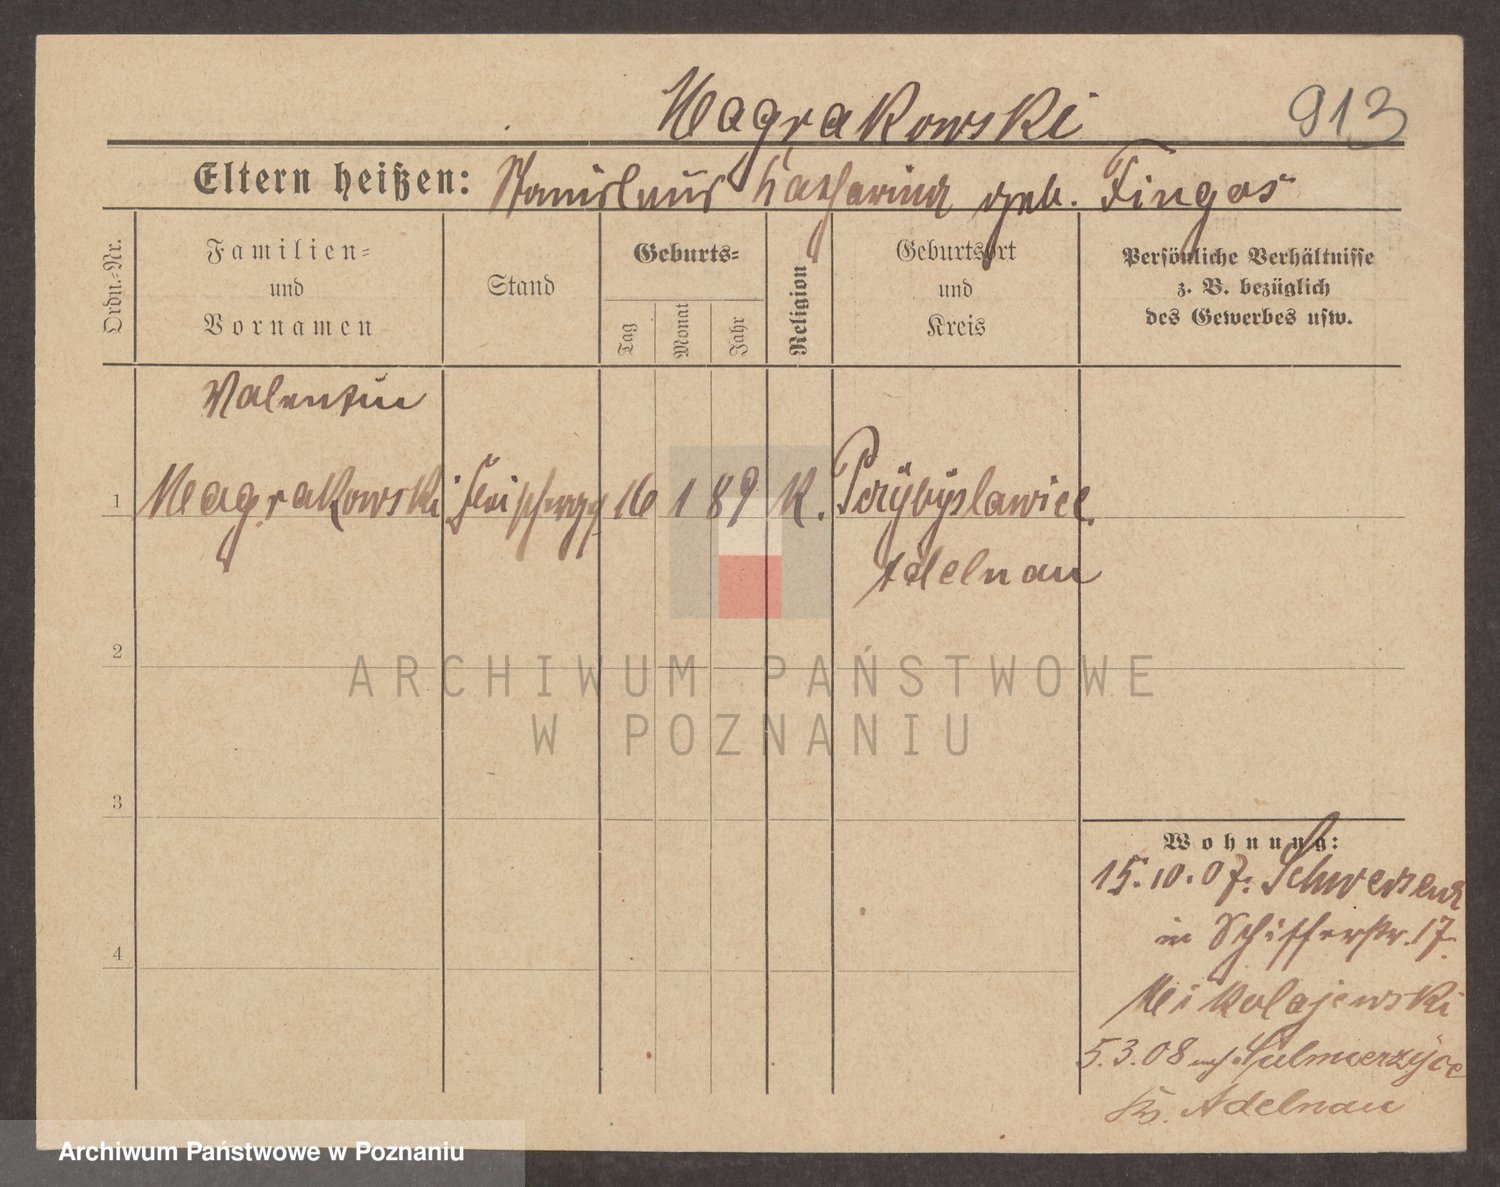 Magrakowski 913
Eltern heißen: Stanislaus Katharina geb. Fingas
Ordn.-Nr.
Familien- und Vornamen
Stand
Geburts-
Tag
Monat
Jahr
Religion
Geburtsort und Kreis
Persönliche Verhältnisse
z. B. bezüglich
des Gewerbes usw.
Valentin
1 Magrakowski 16 1 89 K. Przybyslawice
Adelnau
2
3
4
ARCHIWUM PAŃSTWOWE
W POZNANIU
Wohnung:
15.10.07. Schwersenz
in Schifferstr. 17.
Mikolajewski
5.3.08 Sulmierzyce
Kr. Adelnau
Archiwum Państwowe w Poznaniu